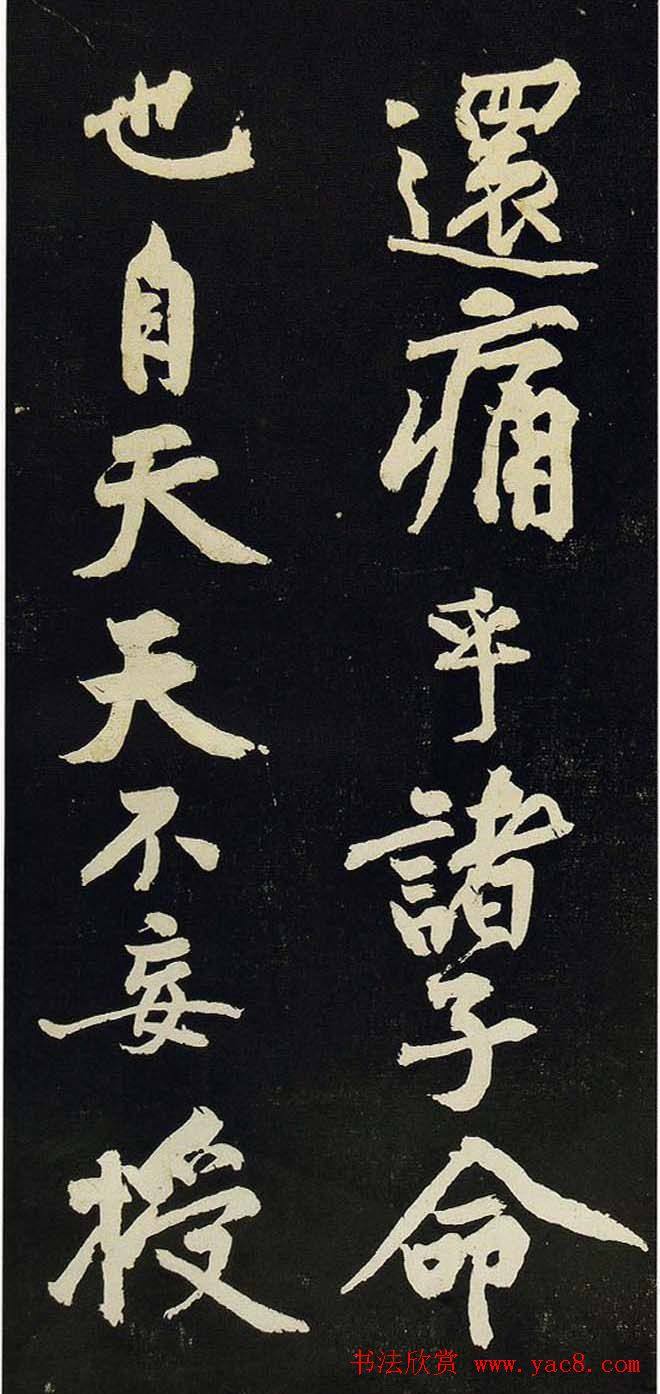 還痛乎諸子命
也自天天不妄授
书法欣赏 www.yac8.com